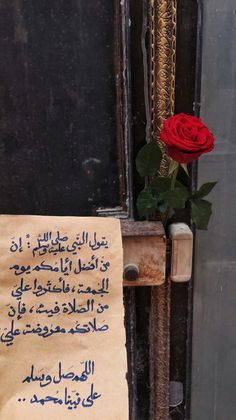 يقول النبي صلى الله عليه وسلم: إن
من أفضل أيامكم يوم
الجمعة، فأكثروا علي
من الصلاة فيه، فإن
صلاتكم معروضة علي
اللهم صل وسلم
على نبينا محمد ..